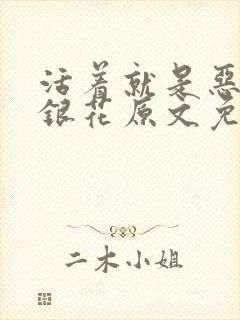 活着就是恶
银花原文免
二木小姐